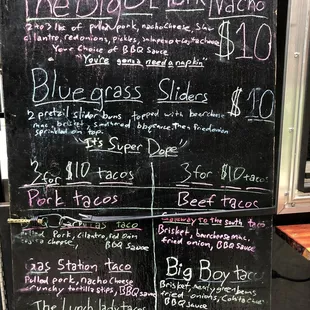 The Big Ol' Pork Nacho
2 to 3 lbs of pulled pork, nacho cheese, Slaw
cilantro, red onions, pickles, jalapenos
Your Choice of BBQ Sauce
$10
"You're gonna need a napkin"
Bluegrass Sliders
$10
2 pretzil slider buns topped with beer cheese
mac, brisket, smothered bbq sauce, Then fried onion
sprinkled on top.
"It's Super Dope"
3 for $10 tacos
Pork tacos
taco
Pulled Pork, cilantro, red onion
cheese, BBQ sauce
Gas Station taco
Pulled pork, nacho cheese
crunchy tortilla stips, BBQ sauce
The Lunch lady taco
3 for $10 tacos
Beef tacos
Gateway to the south taco
Brisket, beer cheese mac,
fried onion, BBQ sauce
Big Boy taco
Brisket, green beans
fried onions, BBQ sauce